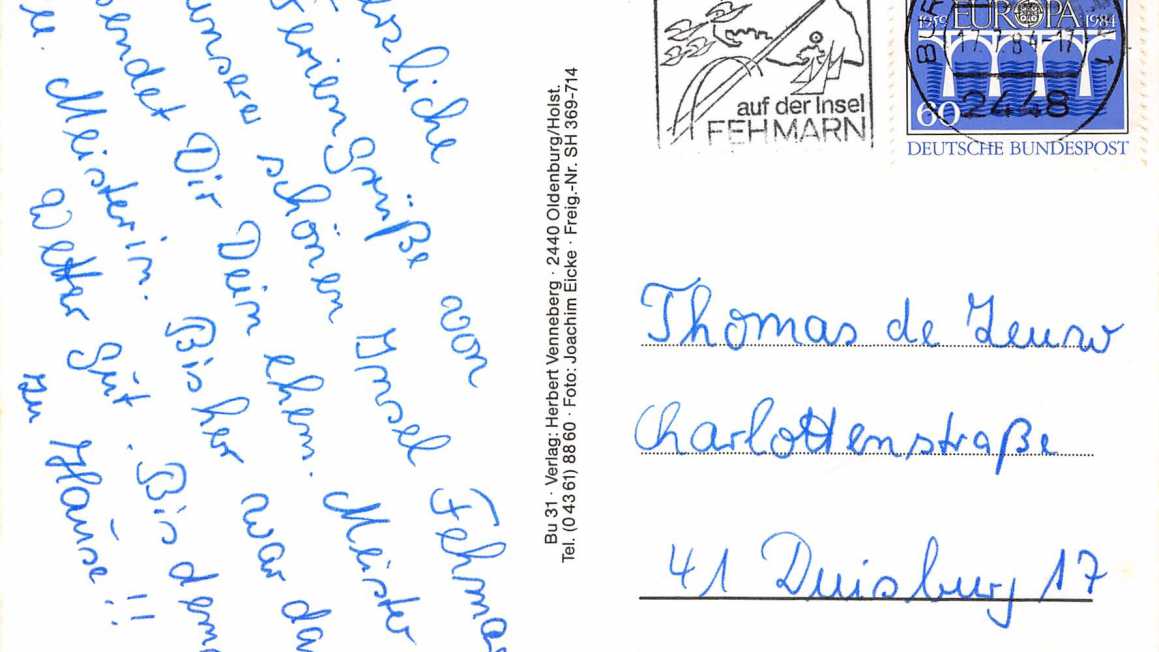 erzliche
Feriengrüße von
unsere schönen Insel Fehmar
sendet Dir Dein ehem. Meister
u. Meisterin. Bisher war da
Wetter gut. Bis demn
zu Hause!!
Bu 31 · Verlag: Herbert Venneberg · 2440 Oldenburg/Holst.
Tel. (0 43 61) 88 60 · Foto: Joachim Eicke · Freig.-Nr. SH 369-714
auf der Insel
FEHMARN
1959 EUROPA 1984
60
DEUTSCHE BUNDESPOST
17.7.84-17
2448
Thomas de
Charlottenstraße
41 Duisburg 17